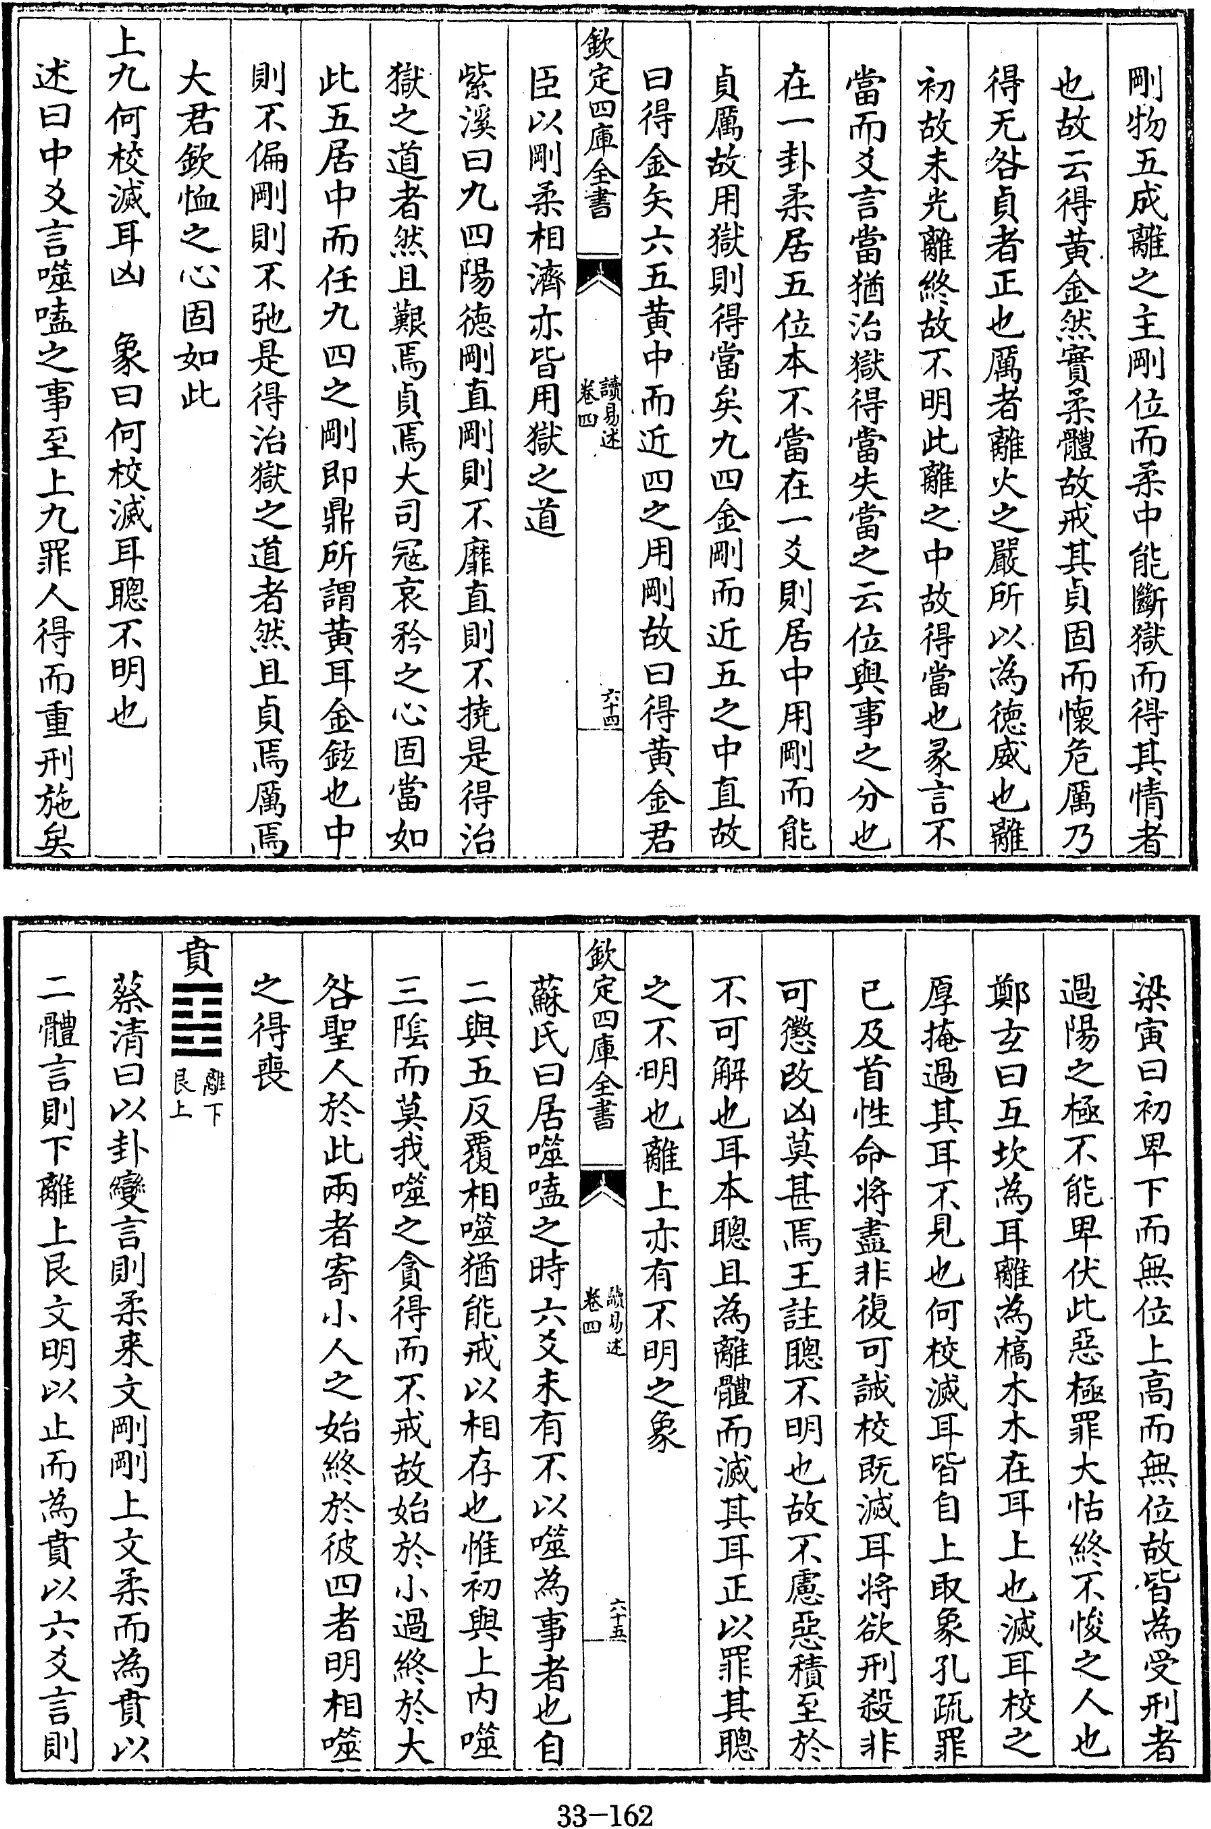 剛物五成離之主剛位而柔中能斷獄而得其情者
也故云得黃金然實柔體故戒其貞固而懷危厲乃
得无咎貞者正也厲者離火之嚴所以為德威也離
初故未光離終故不明此離之中故得當也彖言不
當而爻言當猶治獄得當失當之云位與事之分也
在一卦柔居五位本不當在一爻則居中用剛而能
貞厲故用獄則得當矣九四金剛而近五之中直故
曰得金矢六五黃中而近四之用剛故曰得黃金君
欽定四庫全書
讀易述
卷四
六十四
臣以剛柔相濟亦皆用獄之道
紫溪曰九四陽德剛直剛則不靡直則不撓是得治
獄之道者然且艱焉貞焉大司冦哀矜之心固當如
此五居中而任九四之剛即鼎所謂黃耳金鉉也中
則不偏剛則不弛是得治獄之道者然且貞焉厲焉
大君欽恤之心固如此
上九何校滅耳凶 象曰何校滅耳聰不明也
述曰中爻言噬嗑之事至上九罪人得而重刑施矣
梁寅曰初卑下而無位上高而無位故皆為受刑者
過陽之極不能卑伏此惡極罪大怙終不悛之人也
鄭玄曰互坎為耳離為槁木木在耳上也滅耳校之
厚掩過其耳不見也何校滅耳皆自上取象孔疏罪
已及首性命將盡非復可誡校既滅耳將欲刑殺非
可懲改凶莫甚焉王註聰不明也故不慮惡積至於
不可解也耳本聰且為離體而滅其耳正以罪其聰
之不明也離上亦有不明之象
欽定四庫全書
讀易述
卷四
六十五
蘇氏曰居噬嗑之時六爻未有不以噬為事者也自
二與五反覆相噬猶能戒以相存也惟初與上內噬
三陰而莫我噬之貪得而不戒故始於小過終於大
咎聖人於此兩者寄小人之始終於彼四者明相噬
之得喪
賁 離下
艮上
蔡清曰以卦變言則柔来文剛剛上文柔而為賁以
二體言則下離上艮文明以止而為賁以六爻言則
33-162